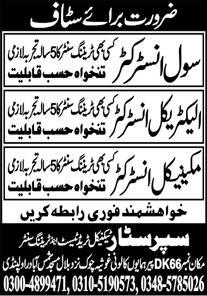 ضرورت برائے سٹاف
سول انسٹرکٹر
کسی بھی ٹریننگ سنٹر کا 5 سالہ تجربہ لازمی
تنخواہ حسب قابلیت
الیکٹریکل انسٹرکٹر
کسی بھی ٹریننگ سنٹر کا 5 سالہ تجربہ لازمی
تنخواہ حسب قابلیت
مکینیکل انسٹرکٹر
کسی بھی ٹریننگ سنٹر کا 5 سالہ تجربہ لازمی
تنخواہ حسب قابلیت
خواہشمند فوری رابطہ کریں
سپر سٹار ٹیکنیکل ٹریڈ ٹیسٹ اینڈ ٹریننگ سنٹر
مکان نمبر DK66 پیر مہابوں کالونی غوثیہ چوک نزد بلال مسجد ڈھوک آباد راولپنڈی
0300-4899471, 0310-5190573, 0348-5785026